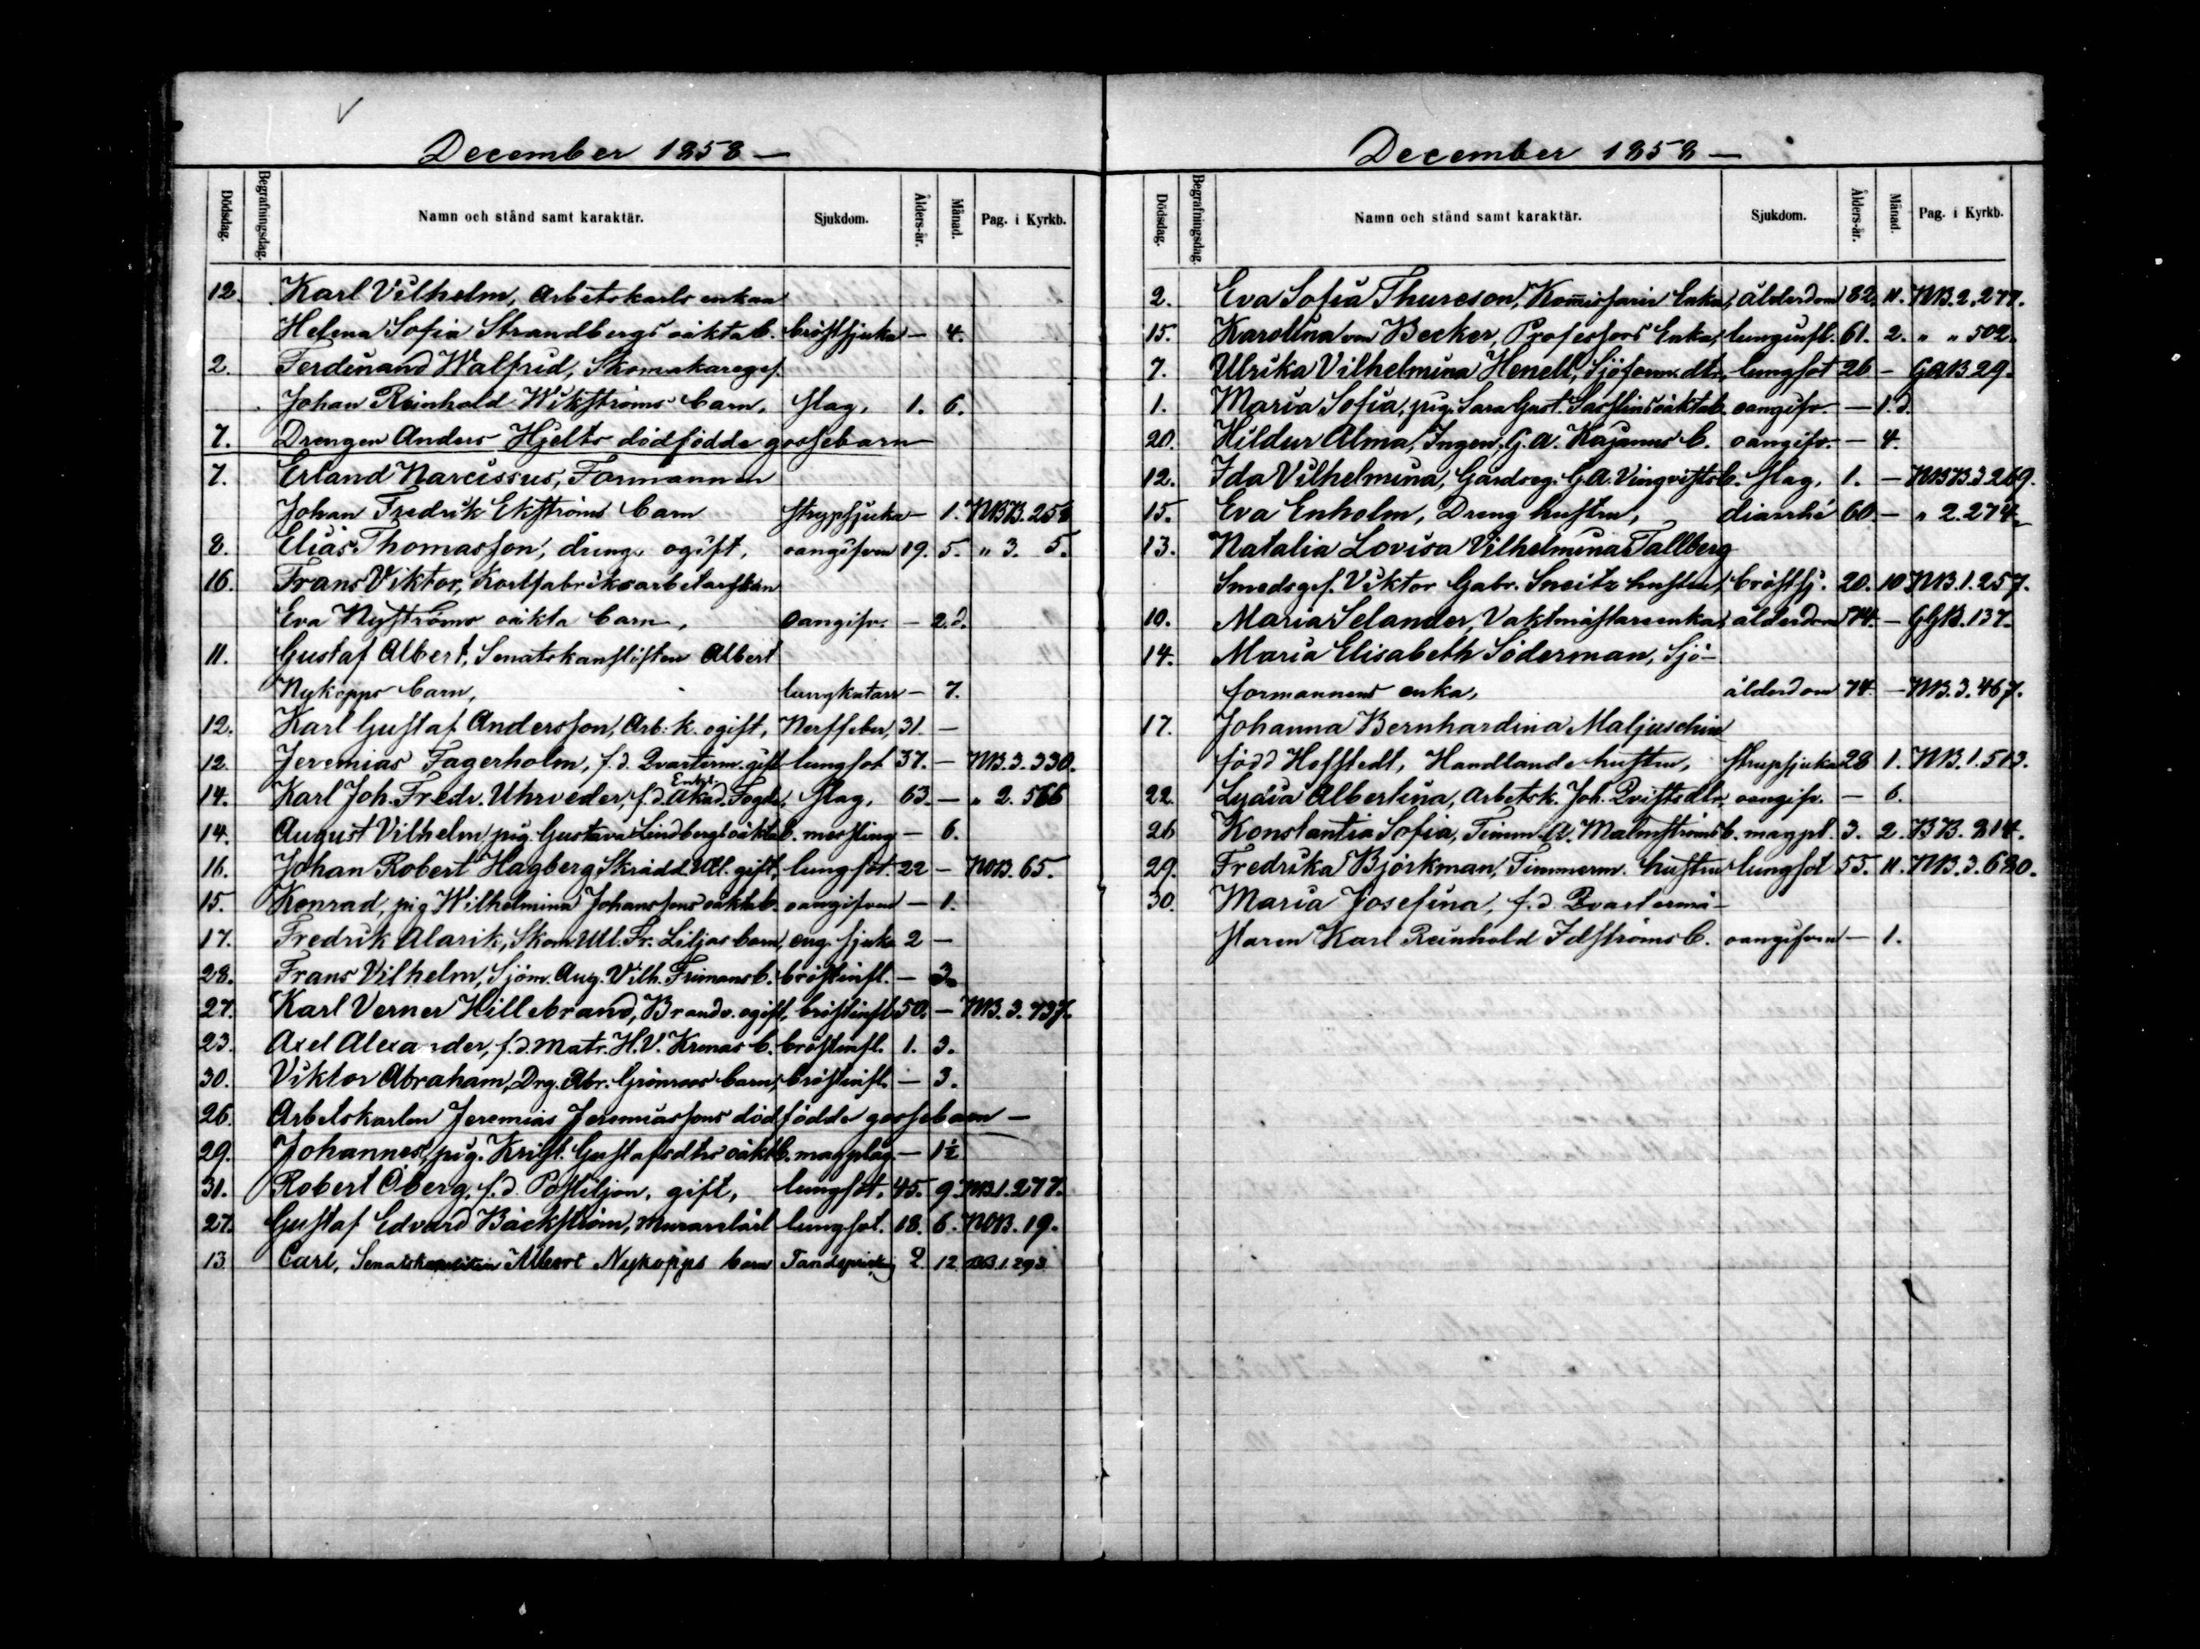 December 1858 —
Dödsdag. Begrafningsdag. Namn och stånd samt karaktär. Sjukdom. Ålders-år. Månad. Pag. i Kyrkb.
12. Karl Vilhelm, Arbetskarls enkan
Helena Sofia Strandbergs oäkta b. bröstsjuka — 4.
2. Ferdinand Walfrid, Skomakareges.
Johan Reinhold Wikströms barn, slag, 1. 6.
7. Drengen Anders Hjelts dödfödda gossebarn —
7. Erland Narcissus, Formannen
Johan Fredrik Ekströms barn strypsjuka — 1. NBB. 258
8. Elias Thomasson, dreng, ogift, oangifven 19. 5. " 3. 5.
16. Frans Viktor, Kortfabriksarbeterskan
Eva Nyströms oäkta barn, oangifv. — 2. d.
11. Gustaf Albert, Senatskanslisten Albert
Nykopps barn, lungkatarr — 7.
12. Karl Gustaf Andersson, Arb. k. ogift, Nerffeber, 31. —
12. Jeremias Fagerholm, f. d. Qvarterm. gift lungsot 37. — NB. 3. 330.
14. Karl Joh. Fredr. Uhrveder, f. d. Akad. Fogde, Enkl. slag, 63. — " 2. 566
14. August Vilhelm pig. Gustava Lindbergs oäkta b. messling — 6.
16. Johan Robert Hagberg, Skrädd. Ål. gift, lungsot. 22 — NOB. 65.
15. Konrad, pig Wilhelmina Johanssons oäkta b. oangifven — 1.
17. Fredrik Alarik, Skom. Ål. Fr. Liljas barn, eng. sjuka 2 —
28. Frans Vilhelm, Sjöm. Aug. Vilh. Frimans b. bröstinfl. — 3.
27. Karl Verner Hillebrand, Brandv. ogift, bröstinfl. 50. — NB. 3. 737.
23. Axel Alexander, f. d. Matr. H. V. Krenas b. bröstinfl. 1. 3.
30. Viktor Abraham, Drg. Abr. Grönroos barn, bröstinfl. — 3.
26. Arbetskarlen Jeremias Jeremiassons dödfödde gossebarn —
29. Johannes, pig. Krist. Gustafsdtrs oäkt b. magplåg. — 1½
31. Robert Öberg, f. d. Postiljon, gift, lungsot, 45. 9. NB. 1. 277.
27. Gustaf Edvard Bäckström, Murarelärl. lungsot. 18. 6. NOB. 19.
13. Carl, Senatskanslisten Albert Nykopps barn Tandsprickn. 2 12 BB. 1. 293
December 1858 —
Dödsdag. Begrafningsdag. Namn och stånd samt karaktär. Sjukdom. Ålders-år. Månad. Pag. i Kyrkb.
2. Eva Sofia Thureson, Komissarie Enka, ålderdom 82. 11. NB. 2. 277.
15. Karolina von Becker, Professors Enka, lunginfl. 61. 2. " " 502.
7. Ulrika Vilhelmina Henell, Sjöform. dtr, lungsot 26 — GAB. 29.
1. Maria Sofia, pig. Sara Gust. oäkta b. oangifv. — 1. d.
20. Hildur Alma, Ingen. G. A. Kajanus b. oangifv. — 4.
12. Ida Vilhelmina, Gårdseg. G. A. Vingvists b. slag, 1. — NBB. 3. 269.
15. Eva Enholm, Dreng hustru, diarrhé 60. — " 2. 274.
13. Natalia Lovisa Vilhelmina Tallberg
Smedsges. Viktor Gabr. Sneitz hustru, bröstsj. 20. 10 NB. 1. 257.
10. Maria Selander, Vaktmästareenka, ålderdom 74. — GGB. 137.
14. Maria Elisabeth Söderman, Sjö-
formannens enka, ålderdom 74. — NB. 3. 467.
17. Johanna Bernhardina Maljuschin
född Hofstedt, Handlande hustru, strupsjuka 28 1. NB. 1. 513.
22. Lydia Albertina, Arbetsk. Joh. Qvists dtr, oangifv. — 6.
26. Konstantia Sofia, Timm. A. Malmströms b. magpl. 3. 2. BB. 214.
29. Fredrika Björkman, Timmerm. hustru lungsot 55. 11. NB. 3. 620.
30. Maria Josefina, f. d. Qvartermä-
staren Karl Reinhold Idströms b. oangifven — 1.